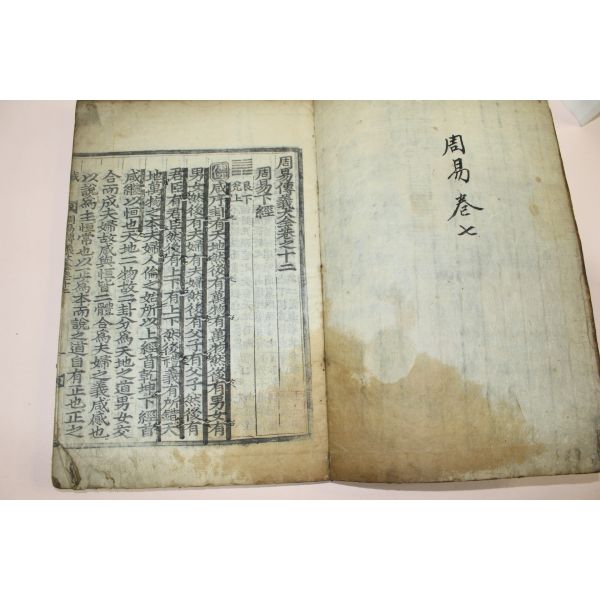 周易卷七
周易傳義大全卷之十二
周易下經
艮下
兌上
咸序卦有天地然後有萬物有萬物然後有男女有
男女然後有夫婦有夫婦然後有父子有父子然後有
君臣有君臣然後有上下有上下然後禮義有所錯天
地萬物之本夫婦人倫之始所以上經首乾坤下經首
咸繼以恒也天地二物故二卦分爲天地之道男女交
合而成夫婦故咸與恒皆二體合爲夫婦之義咸感也
以說爲主恒常也以正爲本而說之道自有正也正之